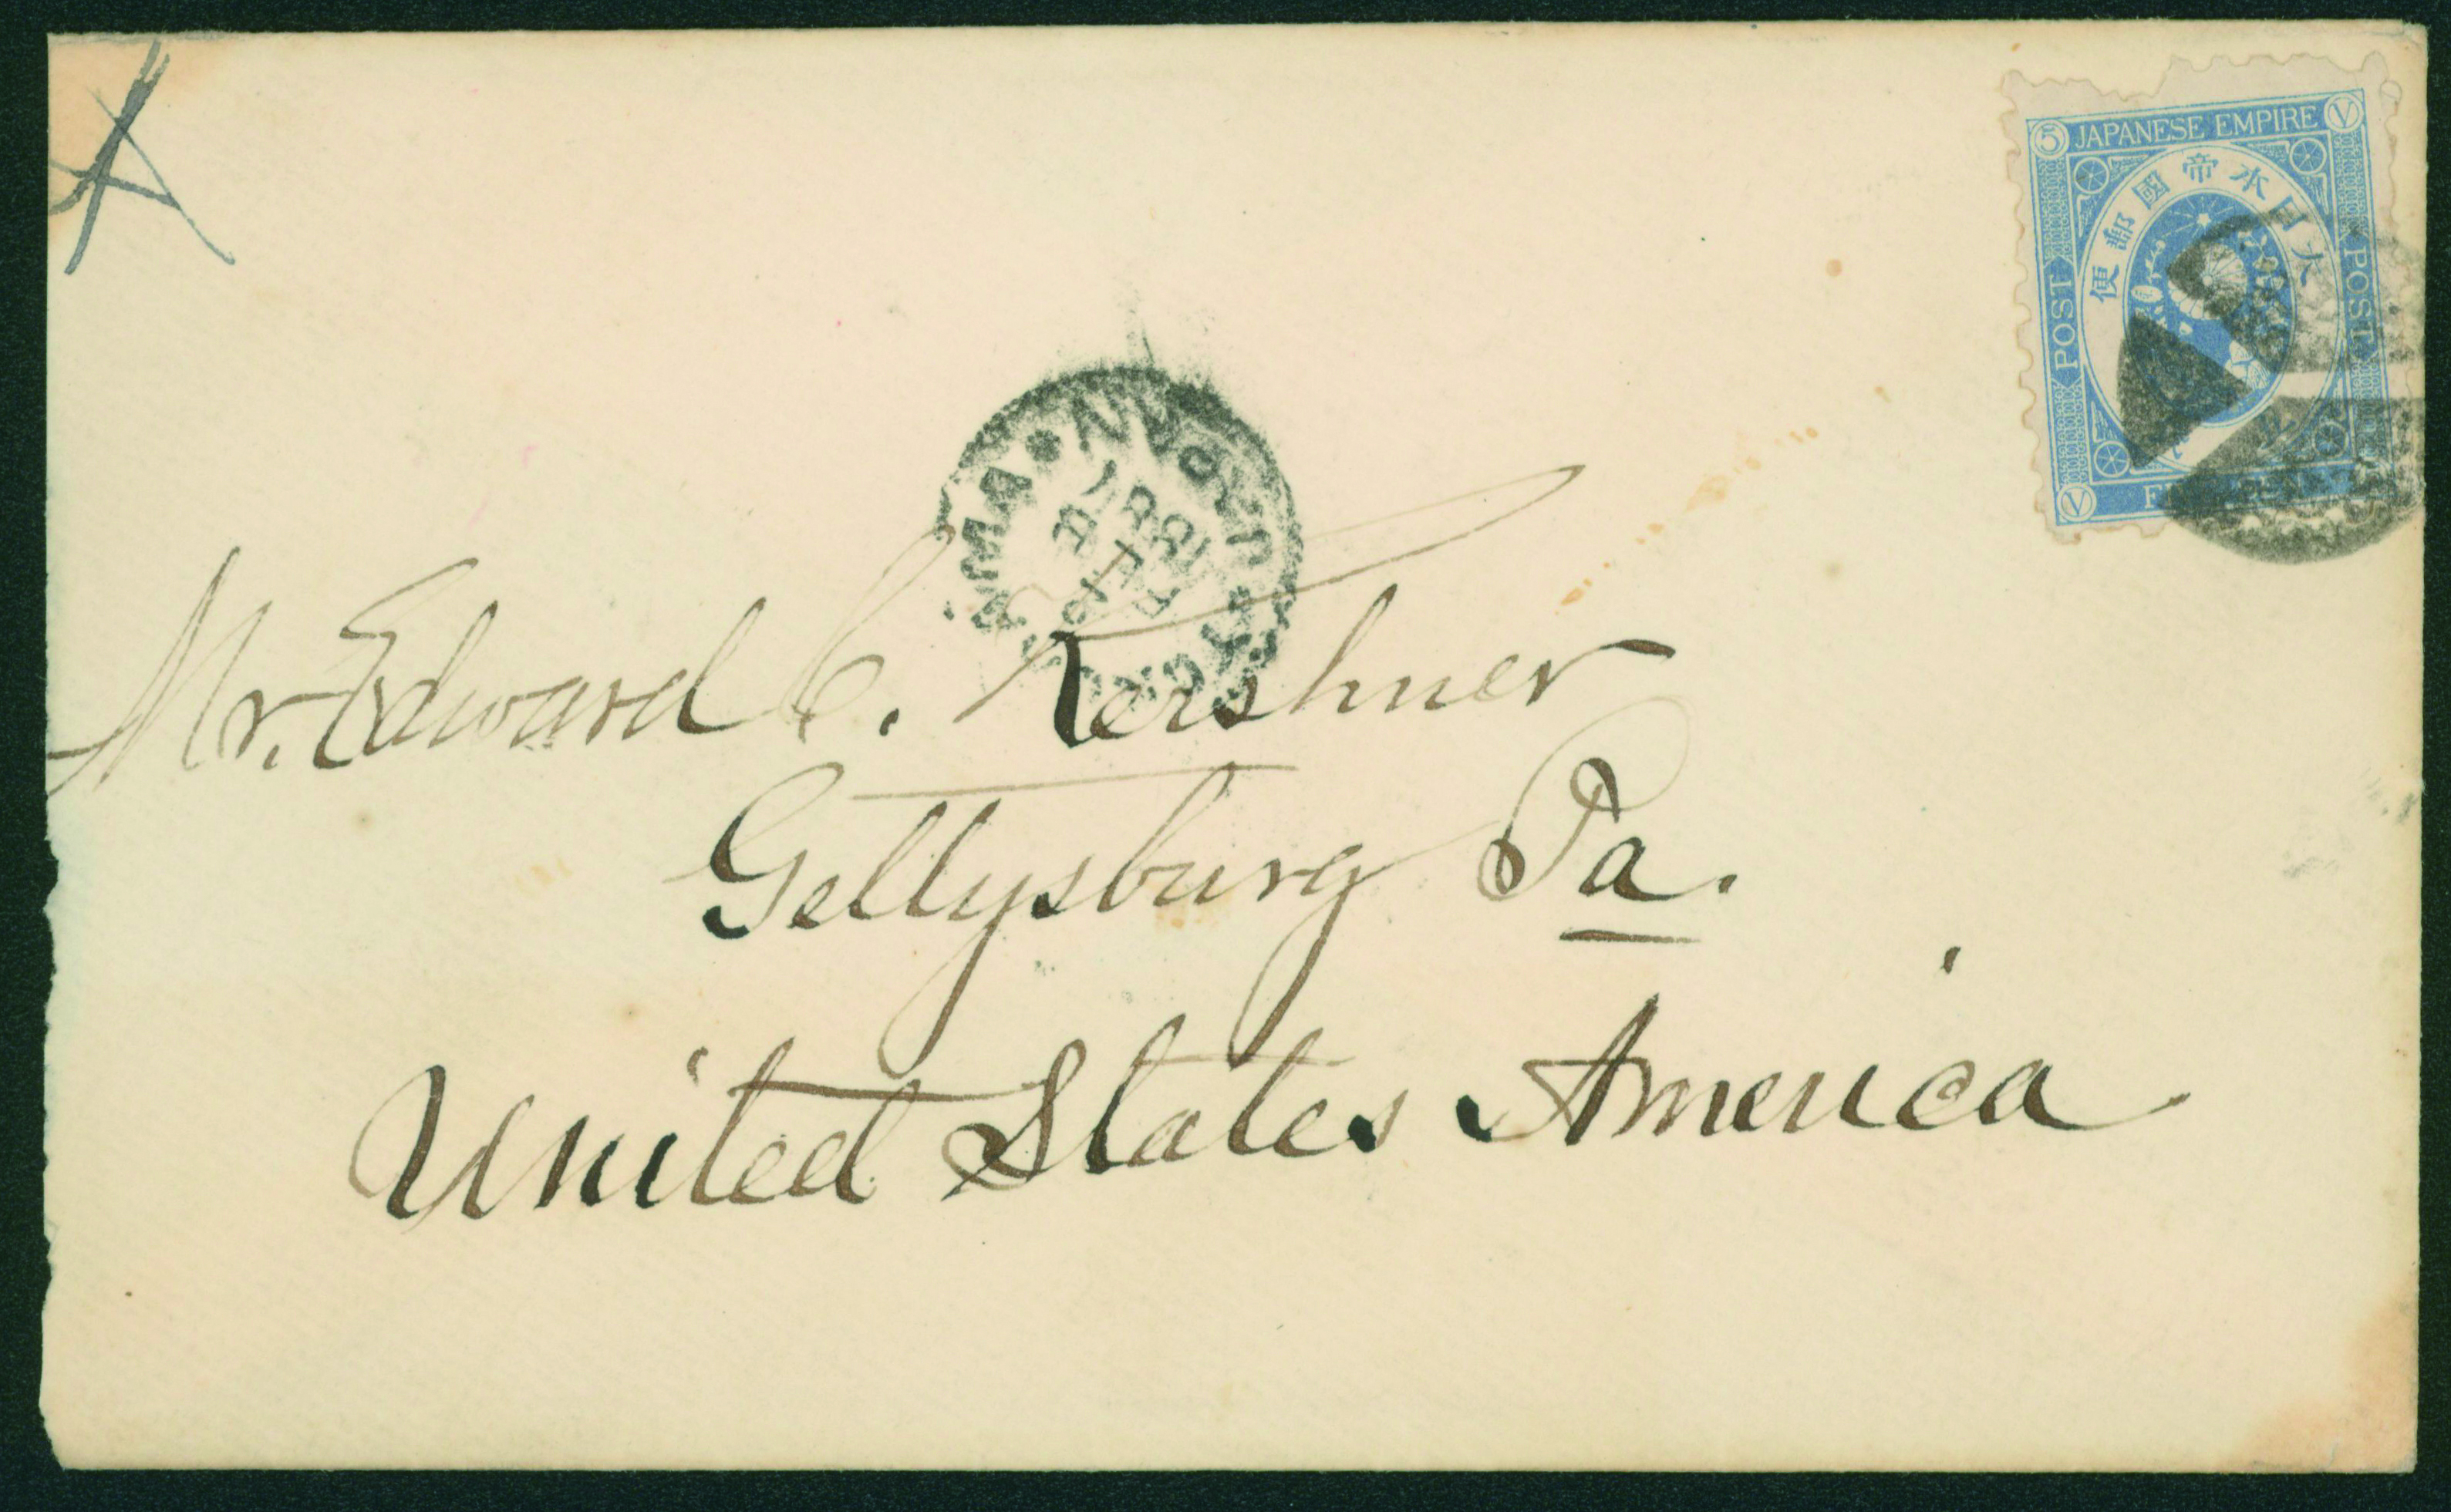 5 JAPANESE EMPIRE V
大日本帝國郵便
POST
POST
V
1887
Mr. Edward C. Kershner
Gettysburg Pa.
United States America